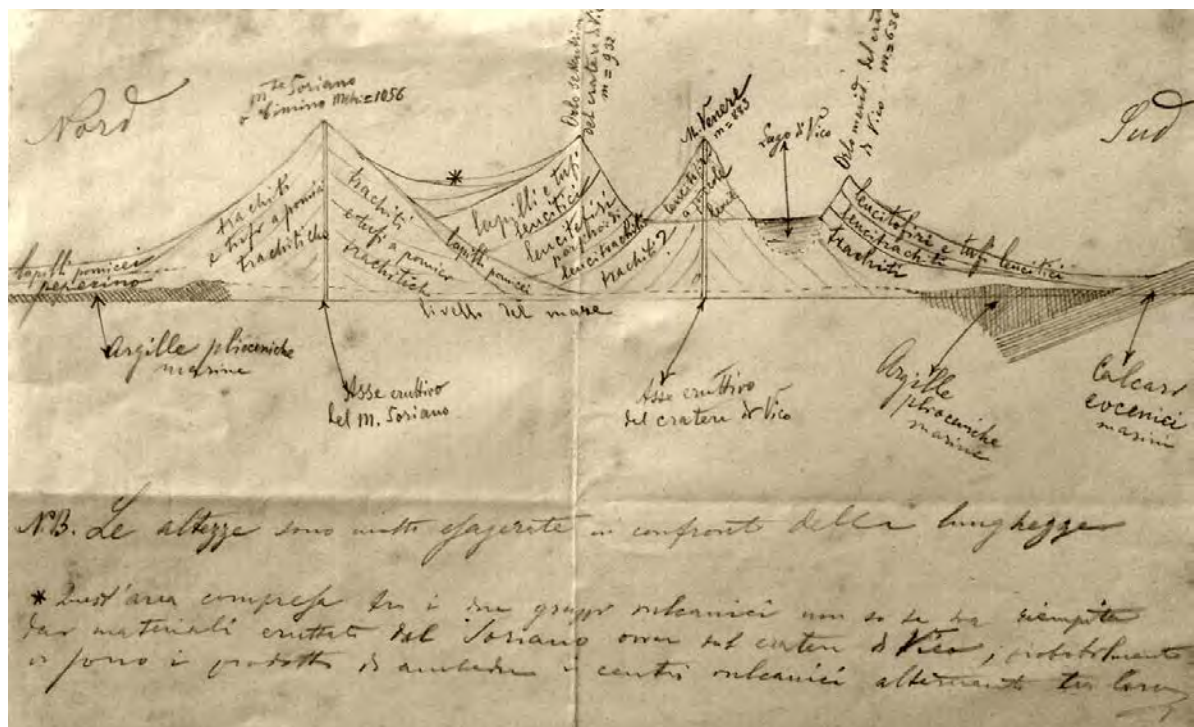 Nord
M.te Soriano
o Cimino Metri=1056
Orlo settentrion.
del cratere di Vico
m = 932
M. Venere
m = 883
Lago di Vico
Orlo merid. del
di Vico - m=636
Sud
*
trachiti
e tufo a pomici
trachitiche
trachiti
e tufi a pomici
trachitich
lapilli e tufi
leucitici
leucitofiri
leucitrachiti
trachiti?
leucitofiri e tufi leucitici
leucitrachiti
trachiti
lapilli pomicei
peperino
lapilli pomicei
livello del mare
Argille plioceniche
marine
Asse eruttivo
del M. Soriano
Asse eruttivo
del cratere di Vico
Argille
plioceniche
marine
Calcari
eocenici
marini
N.B. Le altezze sono molto esagerate in confronto della lunghezze
* Quest'area compresa tra i due gruppi vulcanici non so se sia riempita
da materiali eruttati dal Soriano ovver dal cratere di Vico; probabilmente
vi sono i prodotti di ambedue i centri vulcanici alternanti tra loro